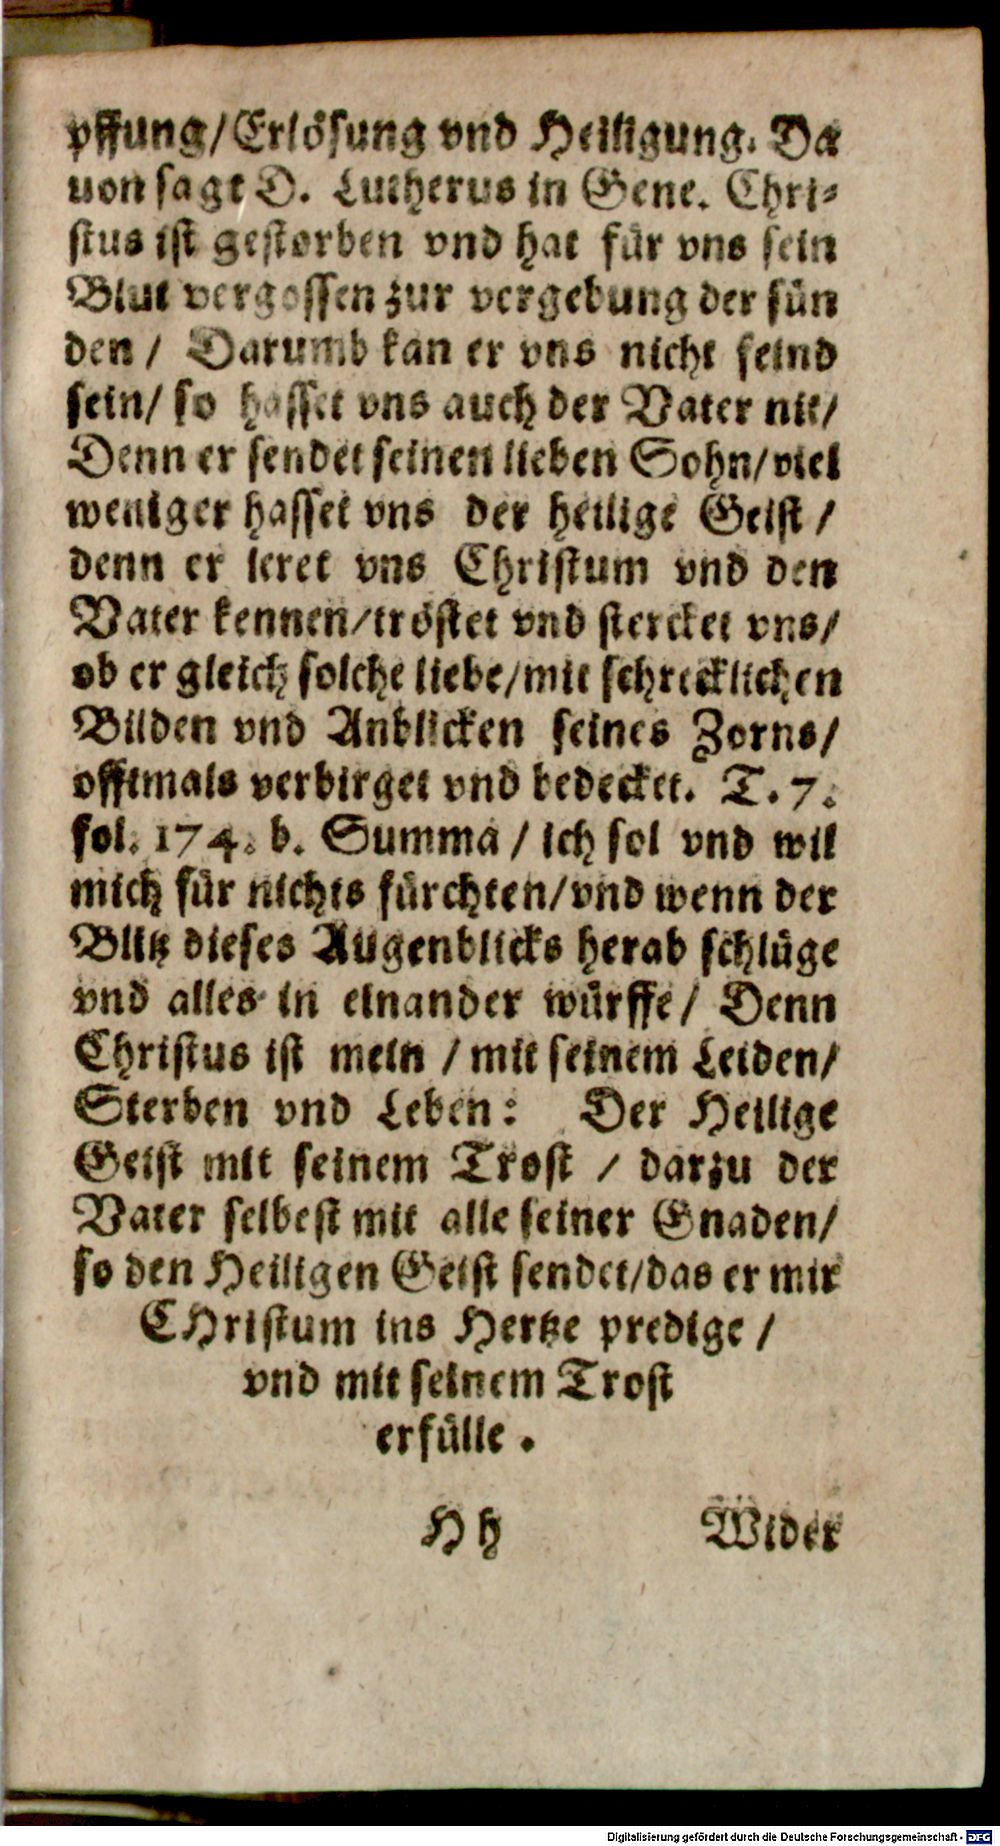 pffung/Erlösung vnd Heiligung. Da
uon sagt D. Lutherus in Gene. Chri⸗
stus ist gestorben vnd hat für vns sein
Blut vergossen zur vergebung der sün
den / Darumb kan er vns nicht feind
sein/ so hasset vns auch der Vater nit/
Denn er sendet seinen lieben Sohn/viel
weniger hasset vns der heilige Geist /
denn er leret vns Christum vnd den
Vater kennen/tröstet vnd stercket vns/
ob er gleich solche liebe/mit schrecklichen
Bilden vnd Anblicken seines Zorns/
offtmals verbirget vnd bedecket. T. 7.
fol. 174. b. Summa / ich sol vnd wil
mich für nichts fürchten/vnd wenn der
Blitz dieses Augenblicks herab schlüge
vnd alles in einander würffe/ Denn
Christus ist mein / mit seinem Leiden/
Sterben vnd Leben: Der Heilige
Geist mit seinem Trost / darzu der
Vater selbest mit alle seiner Gnaden/
so den Heiligen Geist sendet/das er mir
CHristum ins Hertze predige /
vnd mit seinem Trost
erfülle .
H h Wider
Digitalisierung gefördert durch die Deutsche Forschungsgemeinschaft - DFG